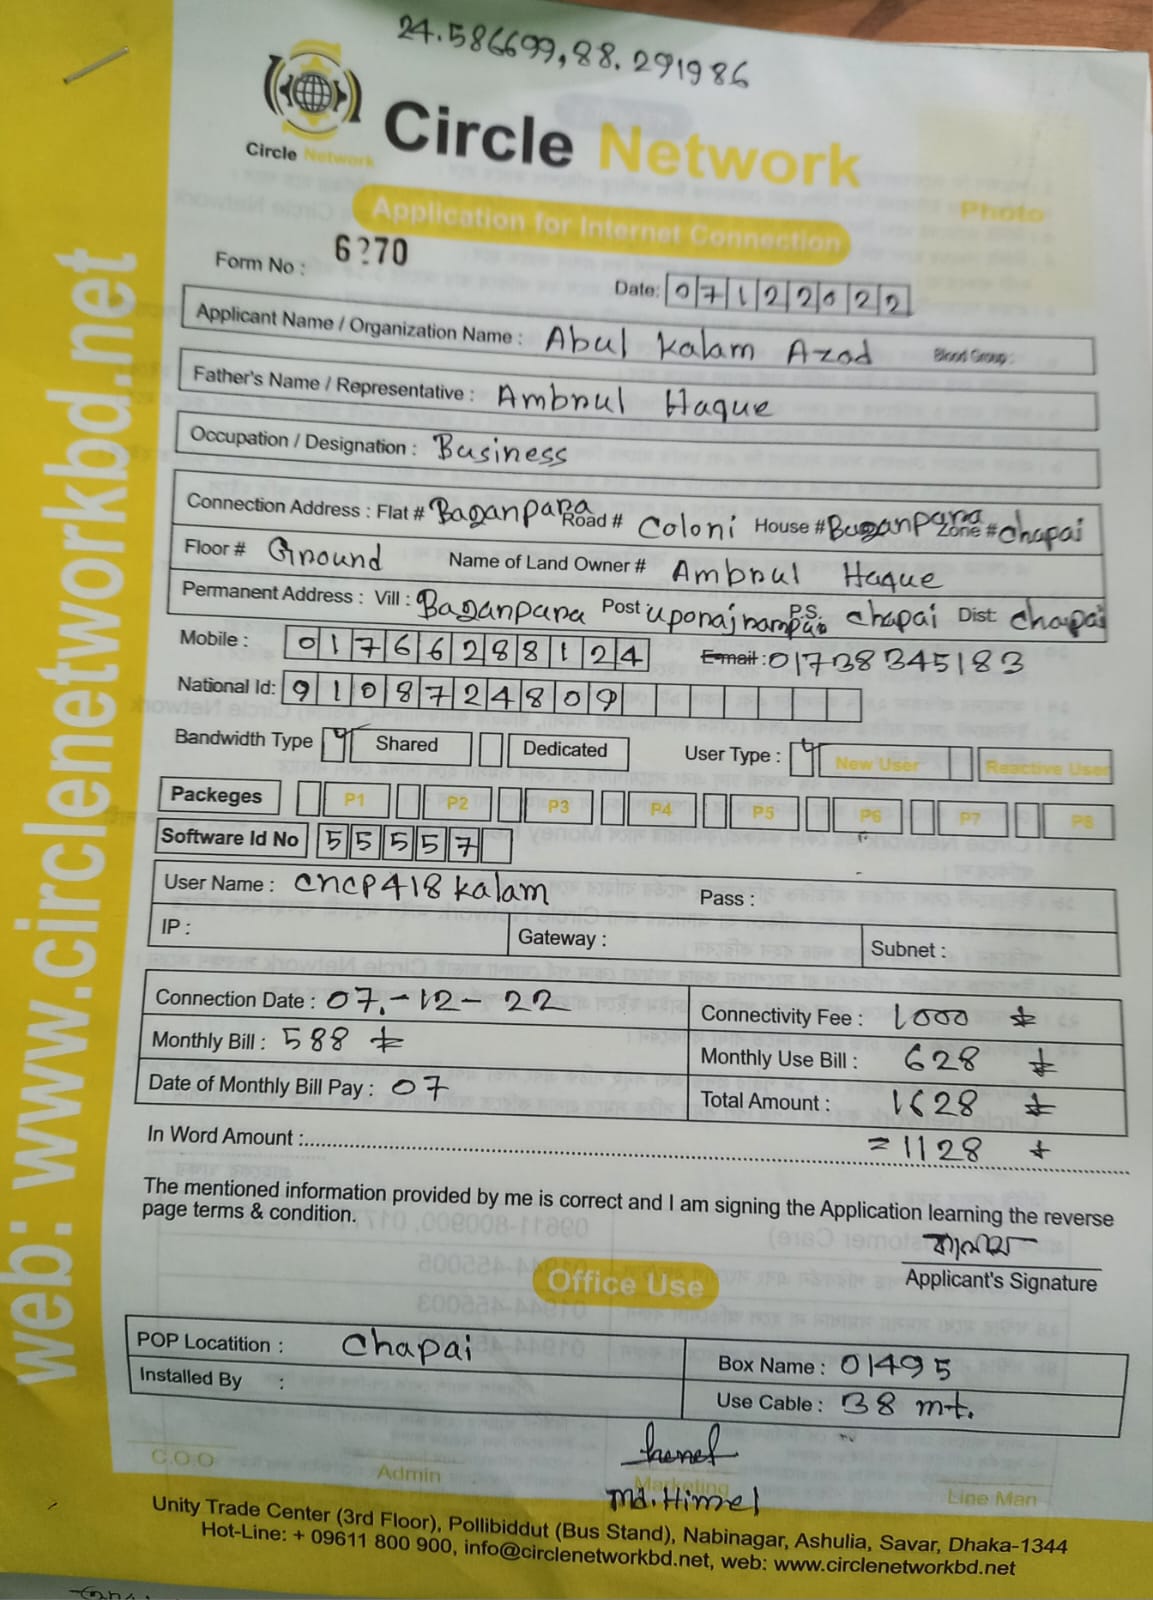 24.586699,88.291986
Circle Network
Circle Network
Photo
Application for Internet Connection
Form No : 6270
Date: 07122022
Applicant Name / Organization Name : Abul Kalam Azad Blood Group :
Father's Name / Representative : Ambrul Haque
Occupation / Designation : Business
Connection Address : Flat # Baganpara Road # Coloni House # Baganpara Zone # chapai
Floor # Ground Name of Land Owner # Ambrul Haque
Permanent Address : Vill : Baganpara Post uporajrampur P.S. chapai Dist: chapai
Mobile : 01766288124 Email : 01738345183
National Id: 9108724809
Bandwidth Type Shared Dedicated User Type : New User Reactive User
Packeges P1 P2 P3 P4 P5 P6 P7 P8
Software Id No 55557
User Name : cncp418kalam Pass :
IP : Gateway : Subnet :
Connection Date : 07.-12-22 Connectivity Fee : 1000
Monthly Bill : 588 Monthly Use Bill : 628
Date of Monthly Bill Pay : 07 Total Amount : 1628
In Word Amount :.......... =1128
The mentioned information provided by me is correct and I am signing the Application learning the reverse
page terms & condition.
Applicant's Signature
Office Use
POP Locatition : Chapai Box Name : 01495
Installed By : Use Cable : 38 mt.
C.O.O Admin Marketing Line Man
Md. Himel
Unity Trade Center (3rd Floor), Pollibiddut (Bus Stand), Nabinagar, Ashulia, Savar, Dhaka-1344
Hot-Line: + 09611 800 900, info@circlenetworkbd.net, web: www.circlenetworkbd.net
web: www.circlenetworkbd.net